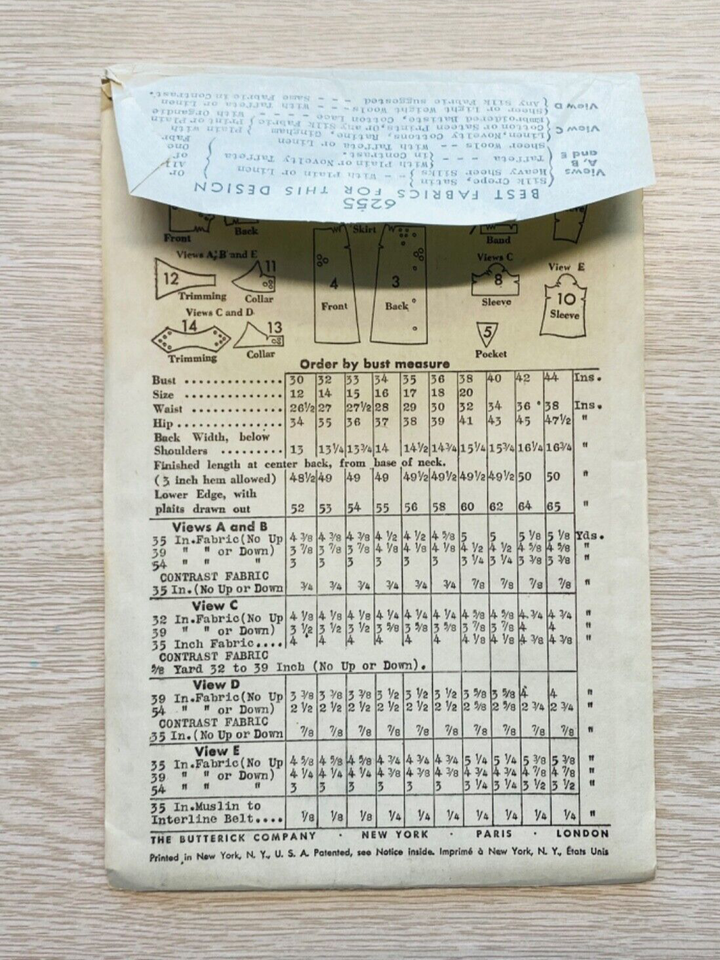 6255
BEST FABRICS FOR THIS DESIGN
Views
A, B
and E
Silk Crepe, Satin,
Heavy Sheer Silks - - With Plain or Linen or
Taffeta - - With Plain or Novelty Taffeta
in Contrast.
Sheer Wools - - With Taffeta or Linen
View C
Linen, Novelty Cottons, Gingham, with
Cotton or Sateen Prints, or any Silk Fabric Print or Plain
Embroidered Batiste, Cotton Lace - - - - With Organdie
View D
Sheer or Light Weight Wools - - - With Taffeta or Linen
Any Silk Fabric suggested - - - Same Fabric in Contrast.
Front
Back
Skirt
Band
Views A, B and E
12
Trimming
11
Collar
4
Front
3
Back
Views C
8
Sleeve
View E
10
Sleeve
Views C and D
14
Trimming
13
Collar
5
Pocket
Order by bust measure
Bust 30 32 33 34 35 36 38 40 42 44 Ins.
Size 12 14 15 16 17 18 20
Waist 26½ 27 27½ 28 29 30 32 34 36 38 Ins.
Hip 34 35 36 37 38 39 41 43 45 47½ "
Back Width, below
Shoulders 13 13¼ 13¾ 14 14½ 14¾ 15¼ 15¾ 16¼ 16¾ "
Finished length at center back, from base of neck.
(3 inch hem allowed) 48½ 49 49 49 49½ 49½ 49½ 49½ 50 50 "
Lower Edge, with
plaits drawn out 52 53 54 55 56 58 60 62 64 65 "
Views A and B
35 In.Fabric(No Up 4 3/8 4 3/8 4 3/8 4 1/2 4 1/2 4 5/8 5 5 5 1/8 5 1/8 Yds.
39 " " or Down) 3 7/8 3 7/8 3 7/8 4 1/8 4 1/8 4 1/8 4 1/2 4 1/2 4 5/8 4 5/8 "
54 " " " 3 3 3 3 3 3 3 1/4 3 1/4 3 3/8 3 3/8 "
CONTRAST FABRIC
35 In.(No Up or Down 3/4 3/4 3/4 3/4 3/4 3/4 7/8 7/8 7/8 7/8 "
View C
32 In.Fabric(No Up 4 1/8 4 1/8 4 1/8 4 1/4 4 1/4 4 1/4 4 5/8 4 5/8 4 3/4 4 3/4 "
39 " " or Down) 3 1/2 3 1/2 3 1/2 3 5/8 3 5/8 3 5/8 3 7/8 3 7/8 4 4 "
35 Inch Fabric.... 4 4 4 4 4 4 4 1/8 4 1/8 4 3/8 4 3/8 "
CONTRAST FABRIC
5/8 Yard 32 to 39 Inch (No Up or Down).
View D
39 In.Fabric(No Up 3 3/8 3 3/8 3 3/8 3 1/2 3 1/2 3 1/2 3 5/8 3 5/8 4 4 "
54 " " or Down) 2 1/2 2 1/2 2 1/2 2 1/2 2 1/2 2 1/2 2 5/8 2 5/8 2 3/4 2 3/4 "
CONTRAST FABRIC
35 In.(No Up or Down 7/8 7/8 7/8 7/8 7/8 7/8 7/8 7/8 7/8 7/8 "
View E
35 In.Fabric(No Up 4 5/8 4 5/8 4 5/8 4 3/4 4 3/4 4 3/4 5 1/4 5 1/4 5 3/8 5 3/8 "
39 " " or Down) 4 1/4 4 1/4 4 1/4 4 1/4 4 1/4 4 1/4 4 3/4 4 3/4 4 7/8 4 7/8 "
54 " " " 3 3 3 3 3 3 3 1/4 3 1/4 3 1/2 3 1/2 "
35 In.Muslin to
Interline Belt.... 1/8 1/8 1/8 1/4 1/4 1/4 1/4 1/4 1/4 1/4 "
THE BUTTERICK COMPANY · NEW YORK · PARIS · LONDON
Printed in New York, N. Y., U. S. A. Patented, see Notice inside. Imprimé à New York, N. Y., États Unis